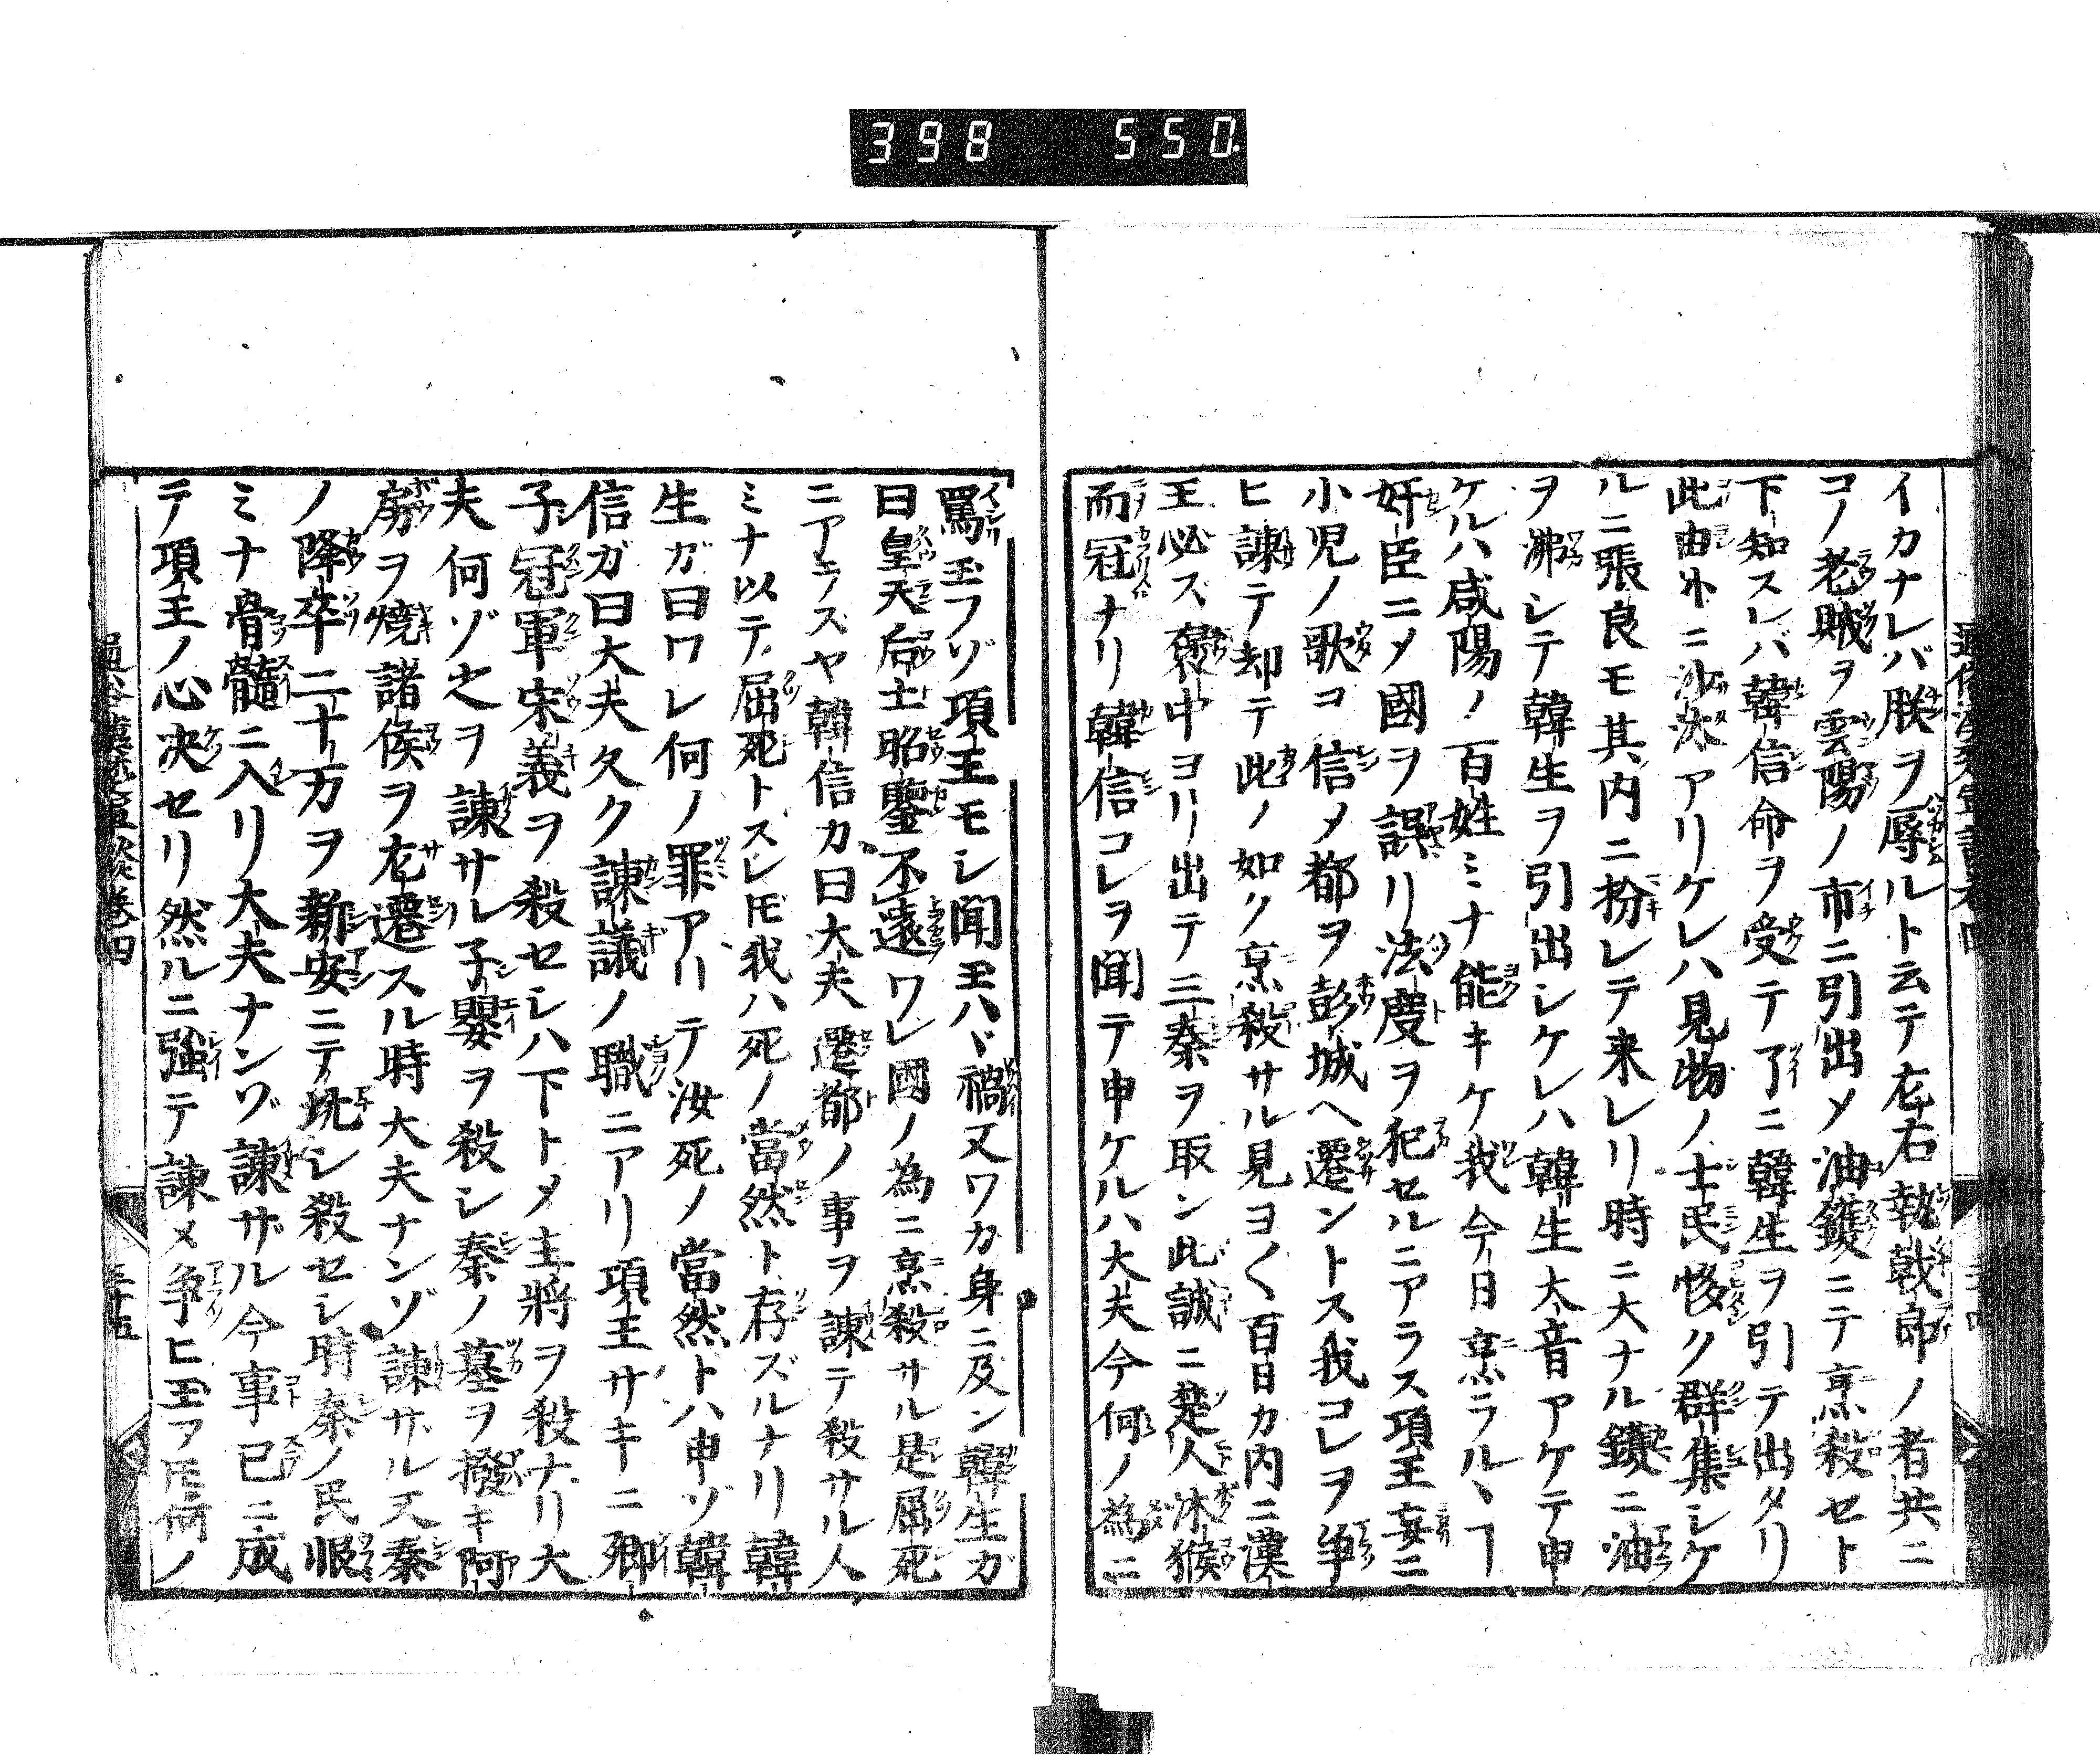 398 550.
イカナレバ朕ヲ辱ルト云テ左右執戟郎ノ者共ニ
コノ老賊ヲ雲陽ノ市ニ引出メ油鑊ニテ烹殺セト
下知スレバ韓信命ヲ受テ了ニ韓生ヲ引テ出タリ
此由外ニ沙汰アリケレハ見物ノ士民夥ク群集シケ
ルニ張良モ其内ニ扮レテ来レリ時ニ大ナル鑊ニ油
ヲ沸シテ韓生ヲ引出シケレハ韓生大音アケテ申
ケルハ咸陽ノ百姓ミナ能キケ我今日烹ラルヽヿ
奸臣ニメ國ヲ誤リ法度ヲ犯セルニアラス項王妄ニ
小児ノ歌コ信メ都ヲ彭城ヘ遷ントス我コレヲ争
ヒ諫テ却テ此ノ如ク烹殺サル見ヨ〱百日カ内ニ漢
王必ズ襃中ヨリ出テ三秦ヲ取ン此誠ニ楚人沐猴
而冠ナリ韓信コレヲ聞テ申ケルハ大夫今何ノ為ニ
罵玉フゾ項王モシ聞玉ハヾ禍又ワカ身ニ及ン韓生ガ
曰皇天后土昭鑒不遠ワレ國ノ為ニ烹殺サル是屈死
ニアラスヤ韓信カ曰大夫遷都ノ事ヲ諫テ殺サル人
ミナ以テ屈死トスレ𪜈我ハ死ノ當然ト存ズルナリ韓
生ガ曰ワレ何ノ罪アリテ汝死ノ當然トハ申ゾ韓
信ガ曰大夫久ク諫議ノ職ニアリ項王サキニ卿
子冠軍宋義ヲ殺セシハ下トメ主將ヲ殺ナリ大
夫何ゾ之ヲ諫サル子嬰ヲ殺シ秦ノ墓ヲ撥キ阿
房ヲ燒諸侯ヲ左遷スル時大夫ナンゾ諫ザル又秦
ノ降卒二十万ヲ新安ニテ坑シ殺セシ時秦ノ民恨
ミナ骨髓ニ入リ大夫ナンゾ諫ザル今事已ニ成
テ項王ノ心决セリ然ルニ強テ諫メ争ヒ玉フ𪜈何ノ
卷四
三十五